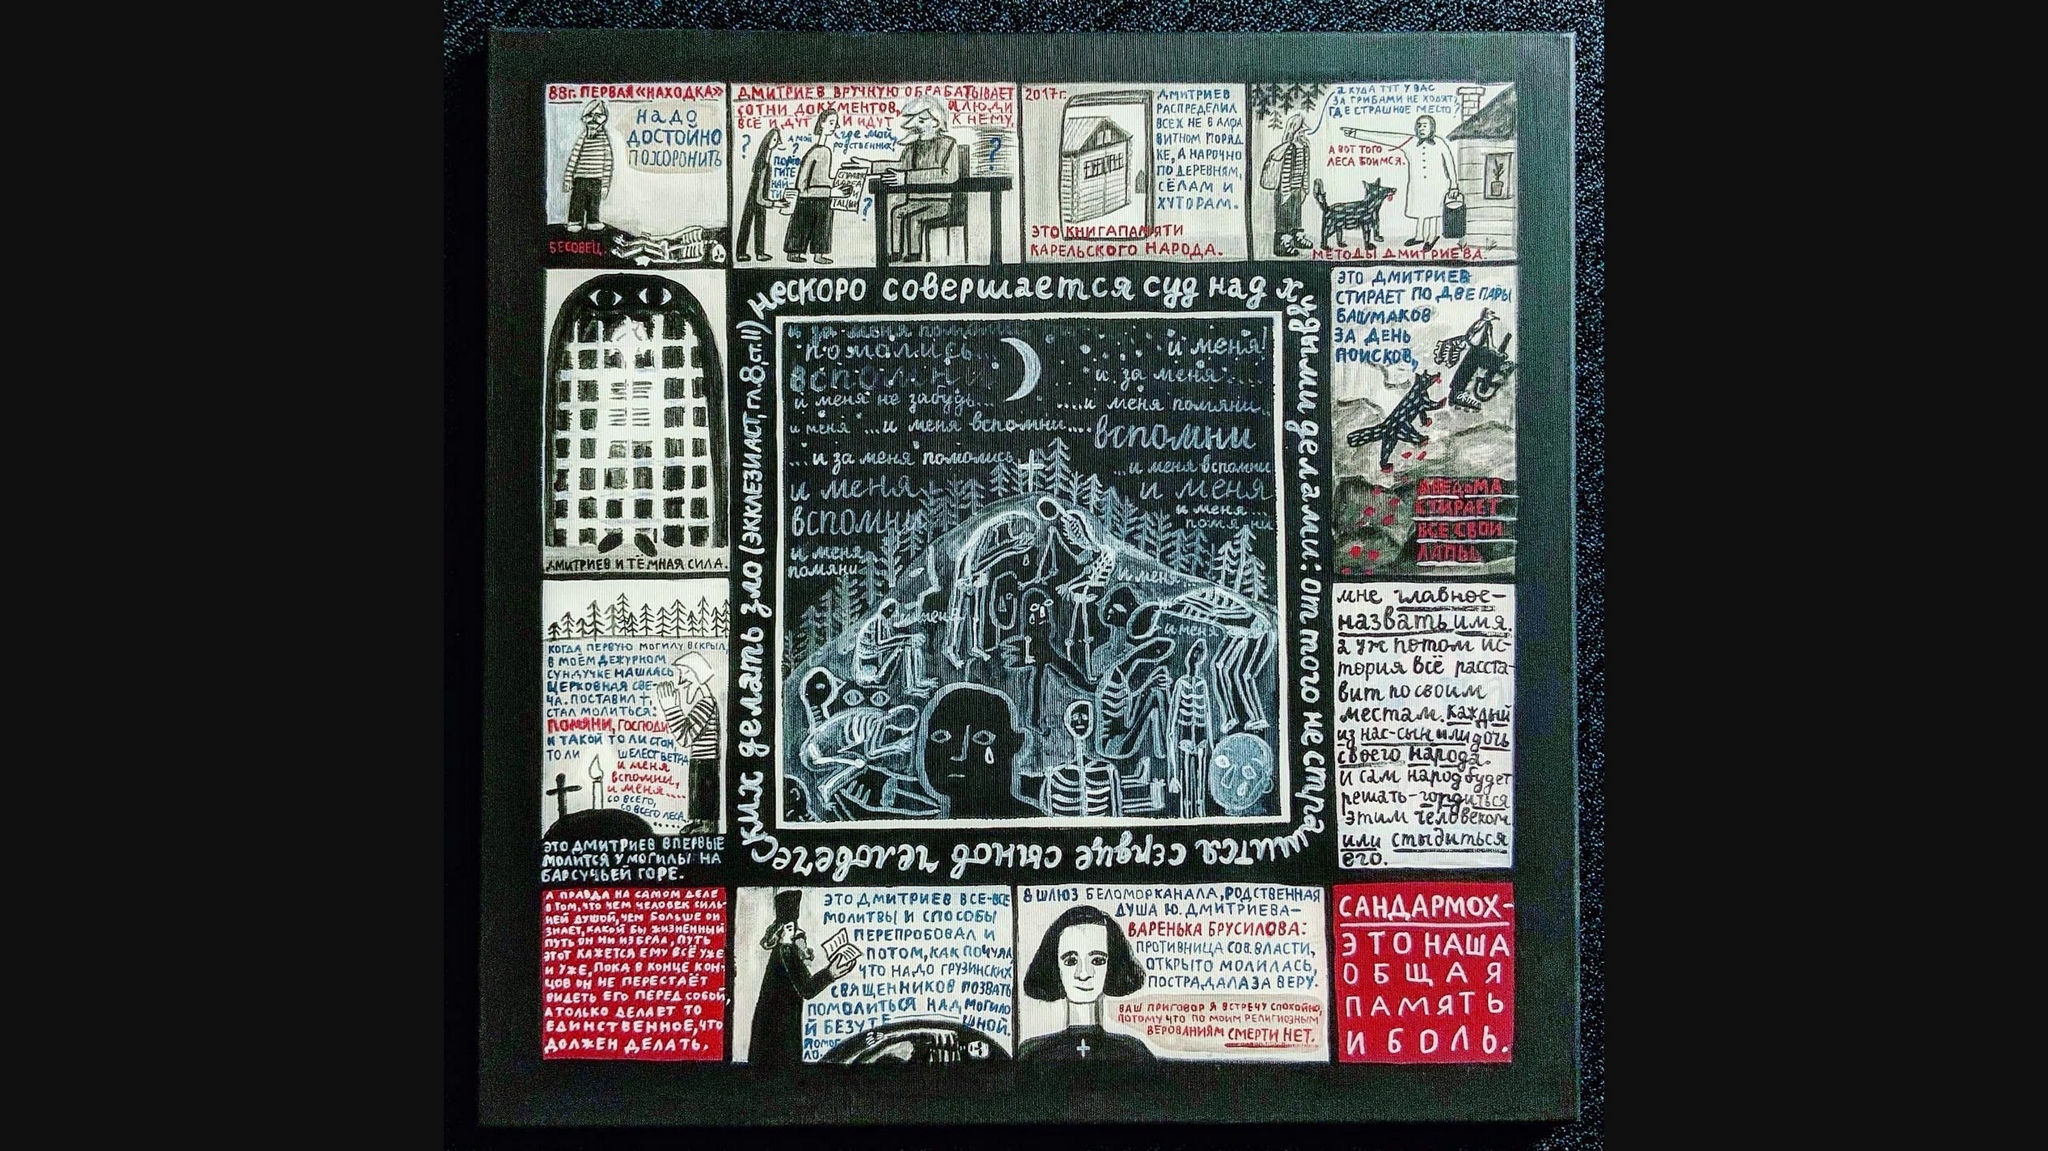 88г. ПЕРВАЯ «НАХОДКА»
НАДО
ДОСТОЙНО
ПОХОРОНИТЬ
БЕСОВЕЦ.
ДМИТРИЕВ ВРУЧНУЮ ОБРАБАТЫВАЕТ
СОТНИ ДОКУМЕНТОВ, А ЛЮДИ
ВСЕ ИДУТ И ИДУТ К НЕМУ.
?
А МОЙ
?
ПОМО
ГИТЕ
НАЙ-
ТИ
ГДЕ МОЙ
РОДСТВЕННИК?
?
?
2017г.
ДМИТРИЕВ
РАСПРЕДЕЛИЛ
ВСЕХ НЕ В АЛФА
ВИТНОМ ПОРЯД
КЕ, А НАРОЧНО
ПО ДЕРЕВНЯМ,
СЁЛАМ И
ХУТОРАМ.
ЭТО КНИГА ПАМЯТИ
КАРЕЛЬСКОГО НАРОДА.
А КУДА ТУТ У ВАС
ЗА ГРИБАМИ НЕ ХОДЯТ,
ГДЕ СТРАШНОЕ МЕСТО?
А ВОТ ТОГО
ЛЕСА БОИМСЯ.
МЕТОДЫ ДМИТРИЕВА.
не скоро совершается суд над худыми делами: от того не страшится сердце сынов человеческих делать зло (ЭККЛЕЗИАСТ, гл. 8, ст. 11)
ДМИТРИЕВ И ТЁМНАЯ СИЛА.
и за меня помолись
помолись...
вспомни
и меня не забудь...
и меня ...и меня вспомни....
...и за меня помолись
и меня
вспомни
и меня
помяни
и меня!
и за меня....
....и меня помяни..
вспомни
...и меня вспомни
и меня
и меня...
помяни
и меня...
меня
и меня
ЭТО ДМИТРИЕВ
СТИРАЕТ ПО ДВЕ ПАРЫ
БАШМАКОВ
ЗА ДЕНЬ
ПОИСКОВ,
А ВЕДЬМА
СТИРАЕТ
ВСЕ СВОИ
ЛАПЫ.
КОГДА ПЕРВУЮ МОГИЛУ ВСКРЫЛ,
В МОЁМ ДЕЖУРНОМ
СУНДУЧКЕ НАШЛАСЬ
ЦЕРКОВНАЯ СВЕ-
ЧА. ПОСТАВИЛ †,
СТАЛ МОЛИТЬСЯ:
ПОМЯНИ, ГОСПОДИ
И ТАКОЙ ТО ЛИ СТОН,
ТО ЛИ ШЕЛЕСТ ВЕТРА
и меня
вспомни,
и меня....
СО ВСЕГО,
СО ВСЕГО ЛЕСА
.....
ЭТО ДМИТРИЕВ ВПЕРВЫЕ
МОЛИТСЯ У МОГИЛЫ НА
БАРСУЧЬЕЙ ГОРЕ.
мне главное-
назвать имя,
а уж потом ис-
тория всё расста-
вит по своим
местам. Каждый
из нас-сын или дочь
своего народа.
и сам народ будет
решать-гордиться
этим человеком
или стыдиться
его.
А ПРАВДА НА САМОМ ДЕЛЕ
В ТОМ, ЧТО ЧЕМ ЧЕЛОВЕК СИЛЬ-
НЕЙ ДУШОЙ, ЧЕМ БОЛЬШЕ ОН
ЗНАЕТ, КАКОЙ БЫ ЖИЗНЕННЫЙ
ПУТЬ ОН НИ ИЗБРАЛ, ПУТЬ
ЭТОТ КАЖЕТСЯ ЕМУ ВСЁ УЖЕ
И УЖЕ, ПОКА В КОНЦЕ КОН-
ЦОВ ОН НЕ ПЕРЕСТАЁТ
ВИДЕТЬ ЕГО ПЕРЕД СОБОЙ,
А ТОЛЬКО ДЕЛАЕТ ТО
ЕДИНСТВЕННОЕ, ЧТО
ДОЛЖЕН ДЕЛАТЬ.
ЭТО ДМИТРИЕВ ВСЕ-ВСЕ
МОЛИТВЫ И СПОСОБЫ
ПЕРЕПРОБОВАЛ И
ПОТОМ, КАК ПОЧУЯЛ
ЧТО НАДО ГРУЗИНСКИХ
СВЯЩЕННИКОВ ПОЗВАТЬ
ПОМОЛИТЬСЯ НАД МОГИЛО
Й БЕЗУТЕ ШНОЙ.
ПОМОГ
ЛО.
8 ШЛЮЗ БЕЛОМОРКАНАЛА, РОДСТВЕННАЯ
ДУША Ю. ДМИТРИЕВА-
ВАРЕНЬКА БРУСИЛОВА:
ПРОТИВНИЦА СОВ. ВЛАСТИ,
ОТКРЫТО МОЛИЛАСЬ,
ПОСТРАДАЛА ЗА ВЕРУ.
ВАШ ПРИГОВОР Я ВСТРЕЧУ СПОКОЙНО,
ПОТОМУ ЧТО ПО МОИМ РЕЛИГИОЗНЫМ
ВЕРОВАНИЯМ СМЕРТИ НЕТ.
САНДАРМОХ-
ЭТО НАША
ОБЩАЯ
ПАМЯТЬ
И БОЛЬ.